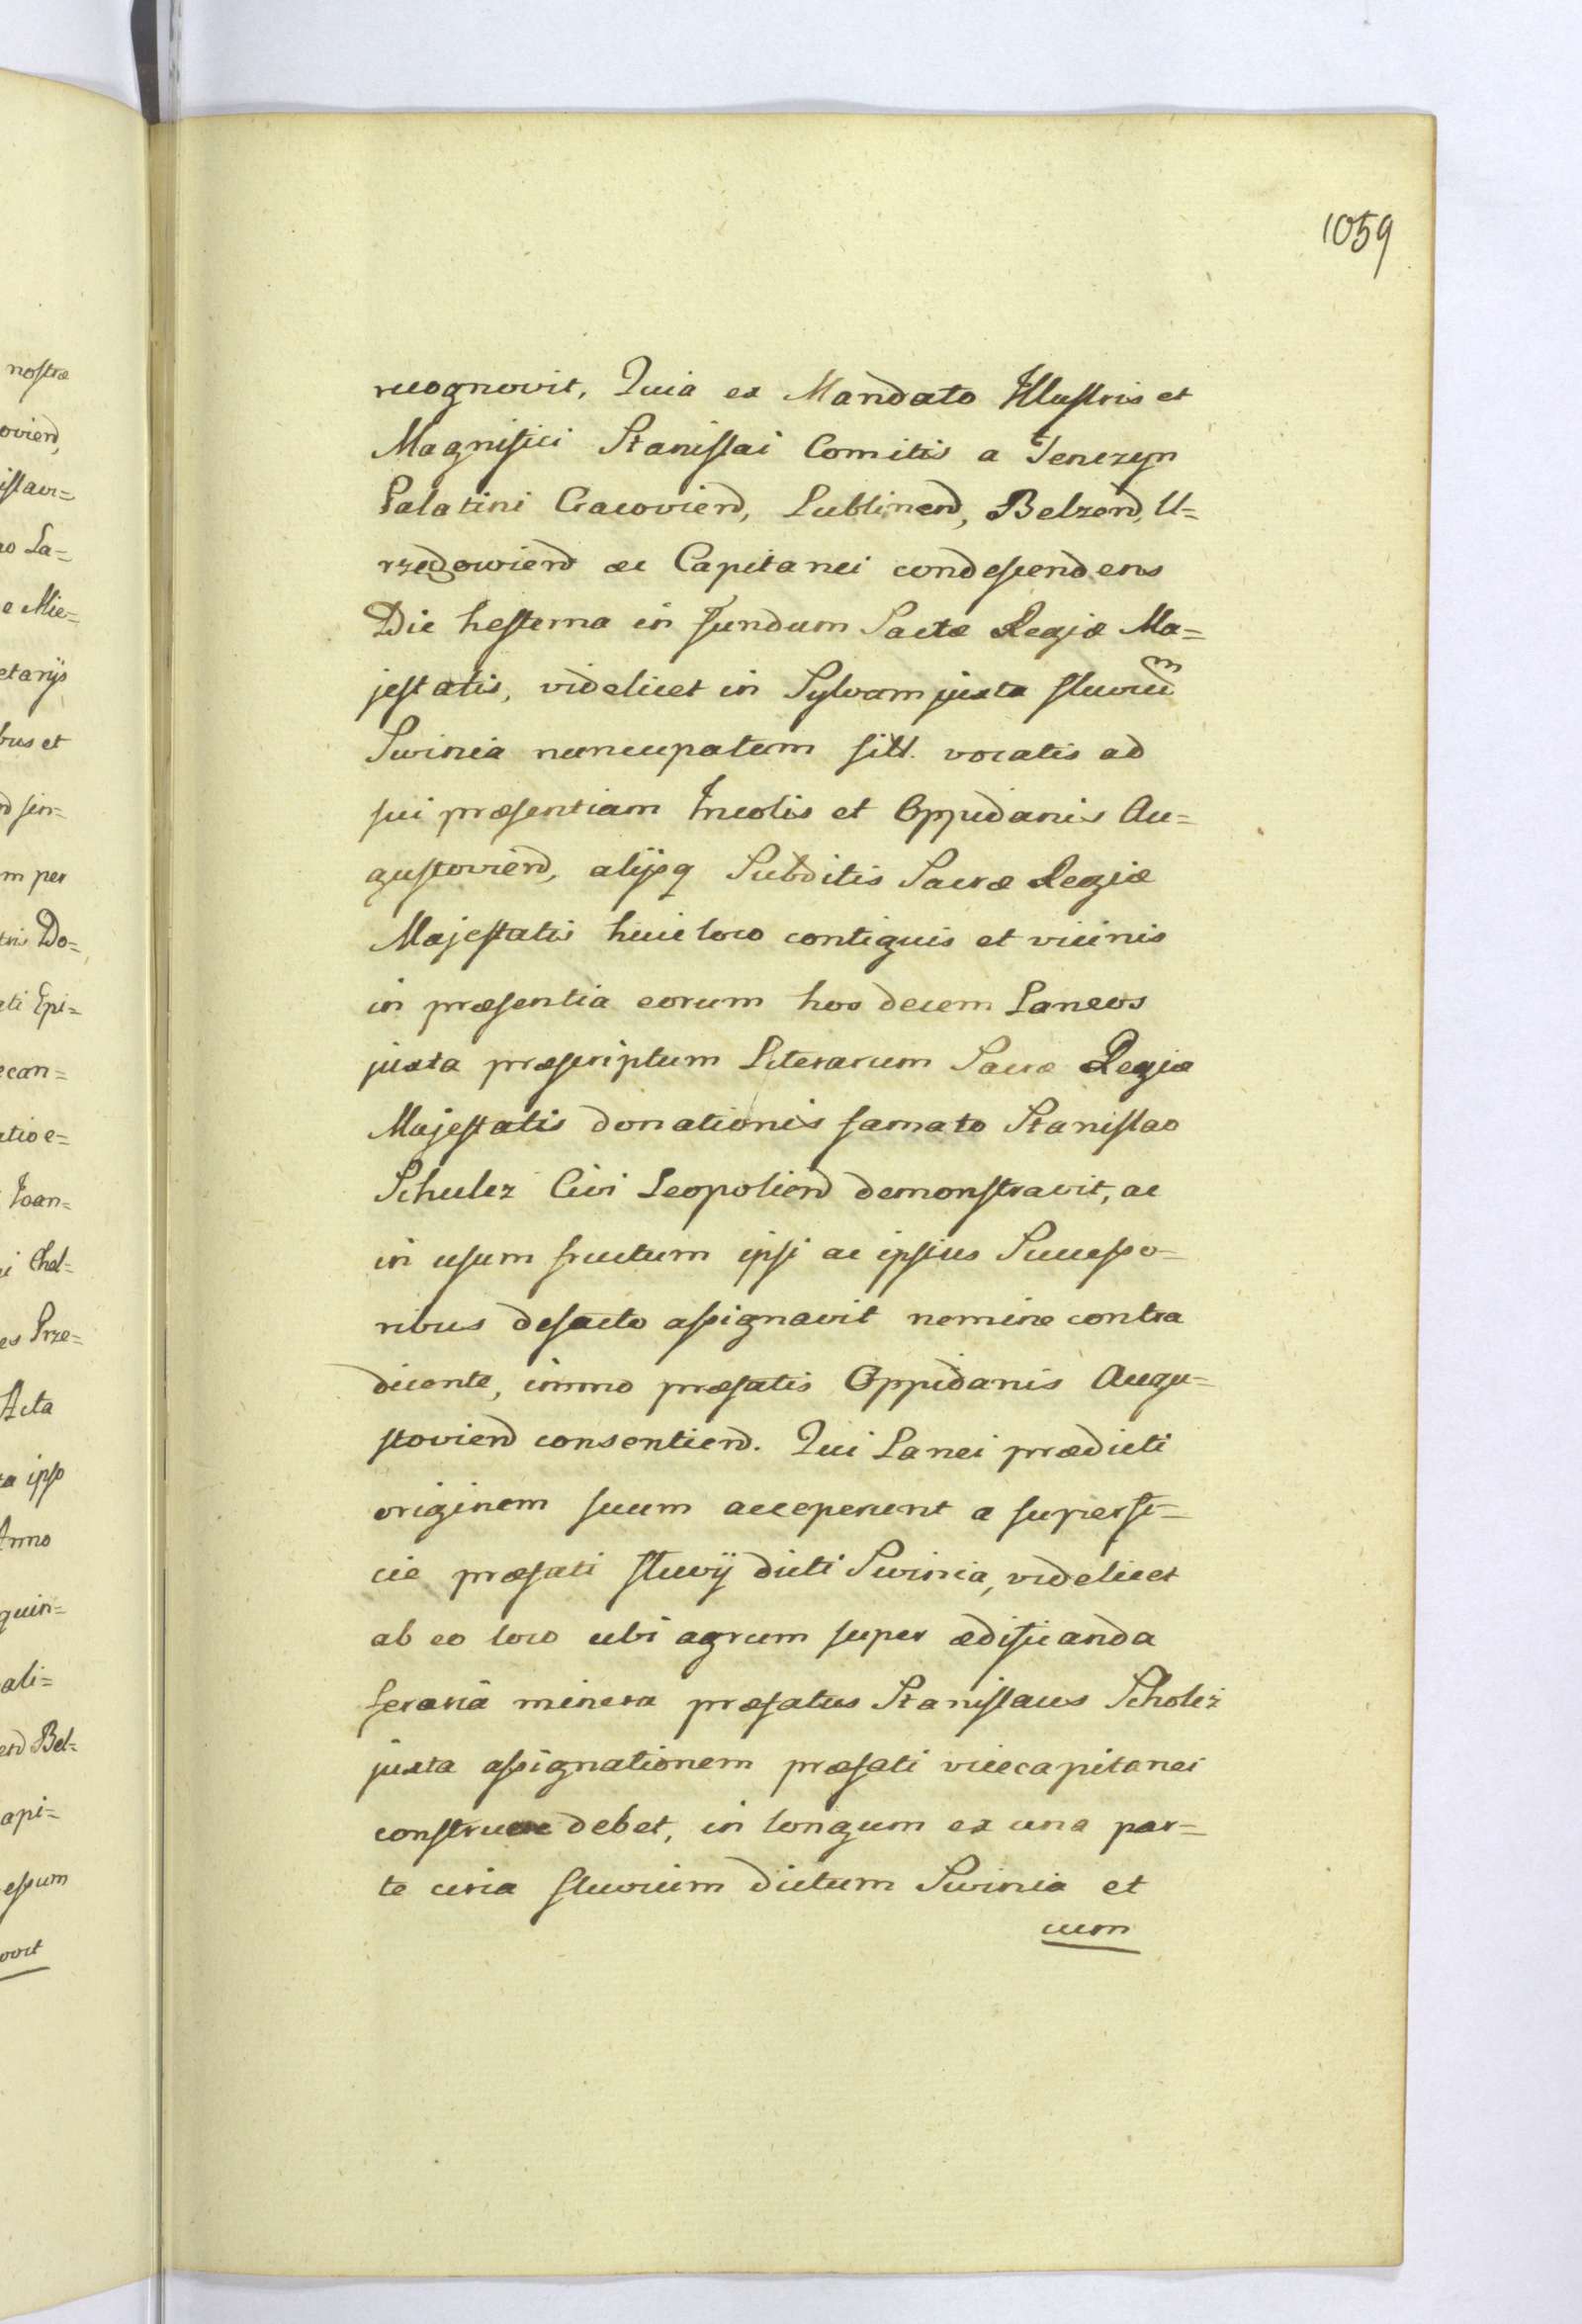 1059
nostræ
recognovit, Quia ex Mandato Illustris et
Magnifici Stanislai Comitis a Tenczyn
Palatini Cracoviend, Lublinend, Belzend, U=
rzędowiend ac Capitanei condescendens
Die hesterna in fundum Sactæ Regiæ Ma=
jestatis, videlicet in Sylvam juxta fluviũ
Swinia nuncupatum sitt. vocatis ad
sui præsentiam Incolis et Oppidanis Au=
gustoviend, alijsq Subditis Sacræ Regiæ
Majestatis huic loco contiguis et vicinis
in præsentia eorum hos decem Laneos
juxta præscriptum Literarum Sacræ Regiæ
Majestatis donationis famato Stanislao
Schulcz Civi Leopoliend demonstravit, ac
in usum fructum ipsi ac ipsius Successo=
ribus defacto assignavit nemine contra
dicente, immo præfatis Oppidanis Augu=
stoviend consentiend. Qui Lanei prædicti
originem suum acceperunt a superfi=
cie præfati fluvij dicti Swinia, videlicet
ab eo loco ubi agrum super ædificanda
feraria minera præfatus Stanislaus Scholcz
juxta assignationem præfati vicecapitanei
construere debet, in longum ex una par=
te circa fluvium dictum Swinia et
cum
oviend,
islavi=
La=
e Mie=
etarijs
bus et
m per
Do=
Epi=
ecan=
atio e=
Joan=
Chel=
es Prze=
Acta
ipso
Anno
quin=
ali=
Bel=
api=
essum
ovit